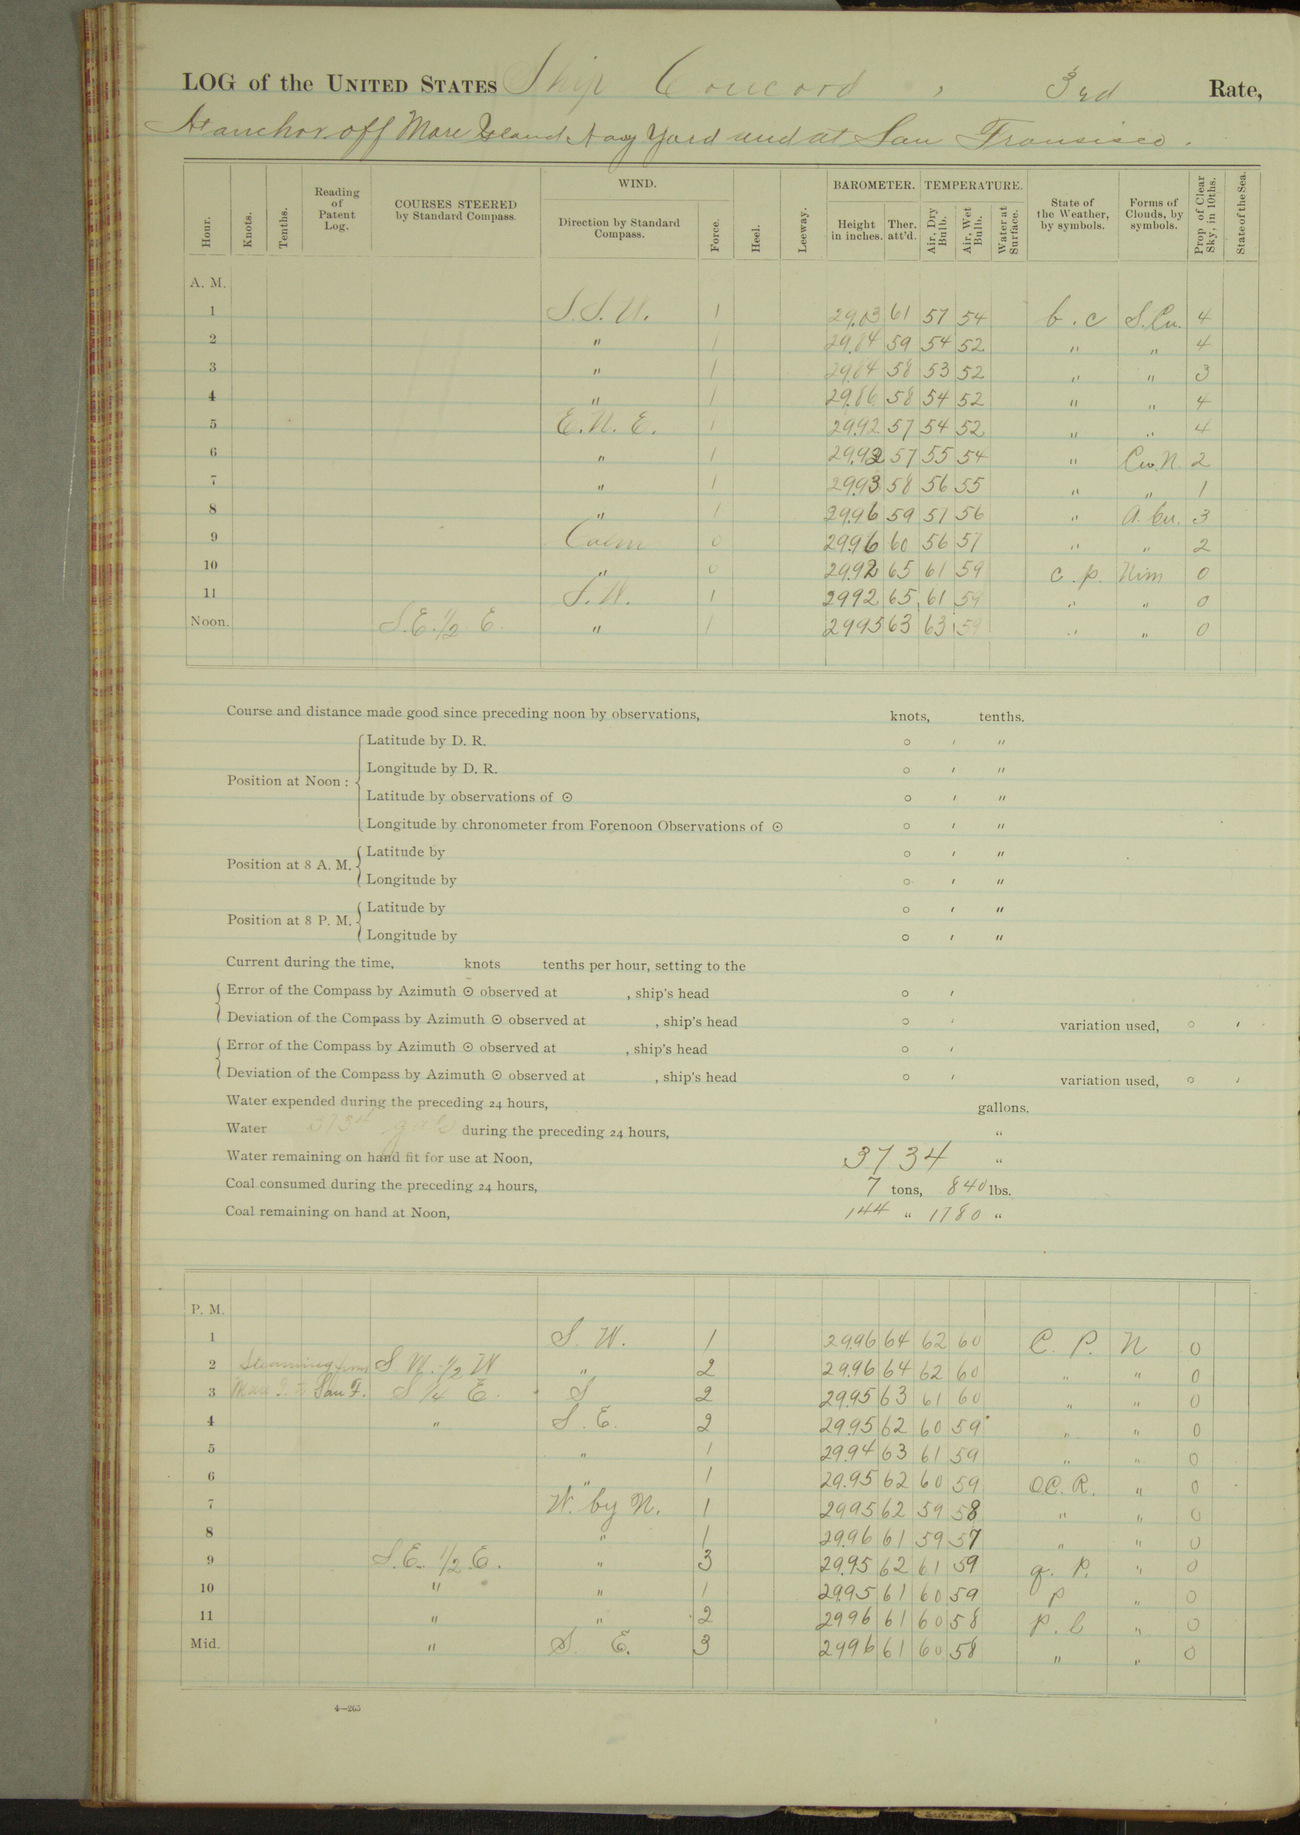 LOG of the UNITED STATES Ship Concord , 3rd Rate,
At anchor off Mare Island Navy Yard and at San Fransisco.
Hour. Knots. Tenths. Reading of Patent Log. COURSES STEERED by Standard Compass. WIND. Direction by Standard Compass. Force. Heel. Leeway. BAROMETER. Height in inches. Ther. att'd. TEMPERATURE. Air, Dry Bulb. Air, Wet Bulb. Water at Surface. State of the Weather, by symbols. Forms of Clouds, by symbols. Prop of Clear Sky, in 10ths. State of the Sea.
A. M.
1 S.S.W. 1 61 57 54 b.c S.Cu. 4
2 " 1 29.84 59 54 52 " " 4
3 " 1 29.84 58 53 52 " " 3
4 " 1 29.86 58 54 52 " " 4
5 E.N.E. 1 29.92 57 54 52 " " 4
6 " 1 29.92 57 55 54 " Cu.N. 2
7 " 1 29.93 58 56 55 " " 1
8 " 1 29.96 59 57 56 " A.Cu. 3
9 Calm 0 29.96 60 56 57 " " 2
10 " 0 29.92 65 61 59 c.p. Nim 0
11 S.W. 1 2992 65 61 59 " " 0
Noon. S.E.1/2 E. " 1 2995 63 63 59 " " 0
Course and distance made good since preceding noon by observations, knots, tenths.
Position at Noon: Latitude by D. R. ○ ′ ″
Longitude by D. R. ○ ′ ″
Latitude by observations of ☉ ○ ′ ″
Longitude by chronometer from Forenoon Observations of ☉ ○ ′ ″
Position at 8 A. M. Latitude by ○ ′ ″
Longitude by ○ ′ ″
Position at 8 P. M. Latitude by ○ ′ ″
Longitude by ○ ′ ″
Current during the time, knots tenths per hour, setting to the
Error of the Compass by Azimuth ☉ observed at , ship's head ○ ′
Deviation of the Compass by Azimuth ☉ observed at , ship's head ○ ′ variation used, ○ ′
Error of the Compass by Azimuth ☉ observed at , ship's head ○ ′
Deviation of the Compass by Azimuth ☉ observed at , ship's head ○ ′ variation used, ○ ′
Water expended during the preceding 24 hours, gallons.
Water 3734 gals during the preceding 24 hours, "
Water remaining on hand fit for use at Noon, 3734 "
Coal consumed during the preceding 24 hours, 7 tons, 840 lbs.
Coal remaining on hand at Noon, 144 " 1780 "
P. M.
1 S.W. 1 29.96 64 62 60 C. P. N 0
2 Steaming from S W. 1/2 W " 2 29.96 64 62 60 " " 0
3 Mare I. to San F. S 1/4 E. S 2 29.95 63 61 60 " " 0
4 " S.E. 2 29.95 62 60 59 " " 0
5 " 1 29.94 63 61 59 " " 0
6 " 1 29.95 62 60 59 O.C.R. " 0
7 W. by N. 1 2995 62 59 58 " " 0
8 " 1 29.96 61 59 57 " " 0
9 S.E. 1/2 E. " 3 29.95 62 61 59 q. P. " 0
10 " " 1 29.95 61 60 59 P " 0
11 " " 2 2996 61 60 58 P. C " 0
Mid. " S. E. 3 2996 61 60 58 " " 0
4—265